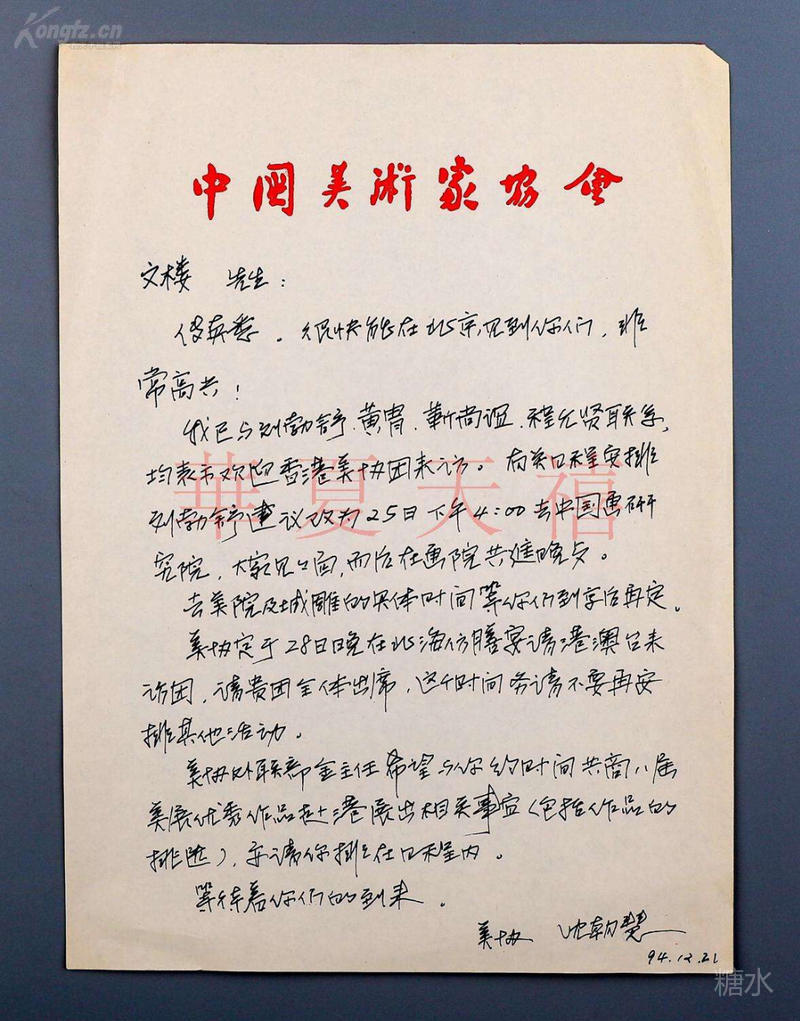 Kongfz.cn
中国美術家协會
文楼 先生：
传真悉。很快能在北京见到你们，非
常高兴！
我已与刘勃舒、黄胄、靳尚谊、程允贤联系，
均表示欢迎香港美协团来访。有关日程安排
刘勃舒建议改为25日下午4:00去中国画研
究院，大家见见面，而后在画院共進晚歺。
去美院及城雕的具体时间等你们到京后再定。
美协定于28日晚在北海仿膳宴请港澳台来
访团，请贵团全体出席，这个时间务请不要再安
排其他活动。
美协外联部金主任希望与你约时间共商八届
美展优秀作品赴港展出相关事宜（包括作品的
挑选），亦请你排在日程内。
等待着你们的到来。
美协 沈朝慧
94.12.21
華夏天禧
糖水